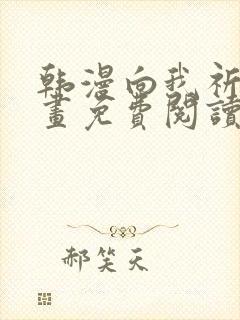 韩漫向我祈
畫免費閱讀
郝笑天